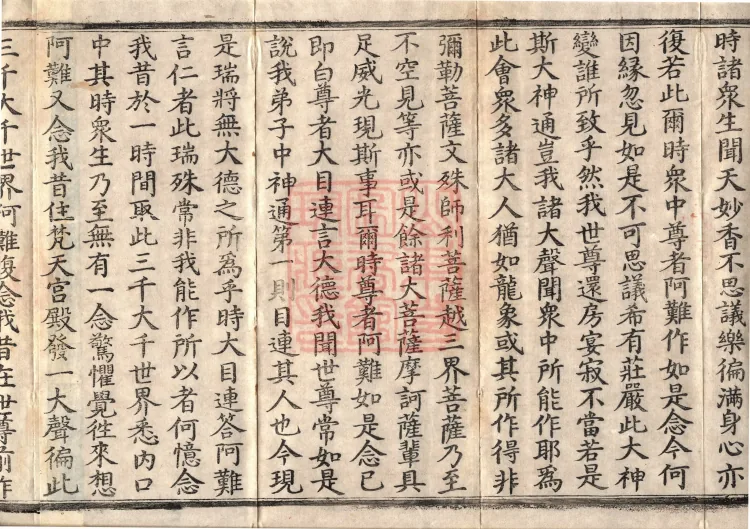 時諸衆生聞天妙香不思議樂徧滿身心亦
復若此爾時衆中尊者阿難作如是念今何
因緣忽見如是不可思議希有莊嚴此大神
變誰所致乎然我世尊還房宴寂不當若是
斯大神通豈我諸大聲聞衆中所能作耶爲
此會衆多諸大人猶如龍象或其所作得非
彌勒菩薩文殊師利菩薩越三界菩薩乃至
不空見等亦或是餘諸大菩薩摩訶薩輩具
足威光現斯事耳爾時尊者阿難如是念已
即白尊者大目連言大德我聞世尊常如是
說我弟子中神通第一則目連其人也今現
是瑞將無大德之所爲乎時大目連答阿難
言仁者此瑞殊常非我能作所以者何憶念
我昔於一時間取此三千大千世界悉内口
中其時衆生乃至無有一念驚懼覺徃來想
阿難又念我昔住梵天宮殿發一大聲徧此
三千大千世界阿難復念我昔在世尊前作